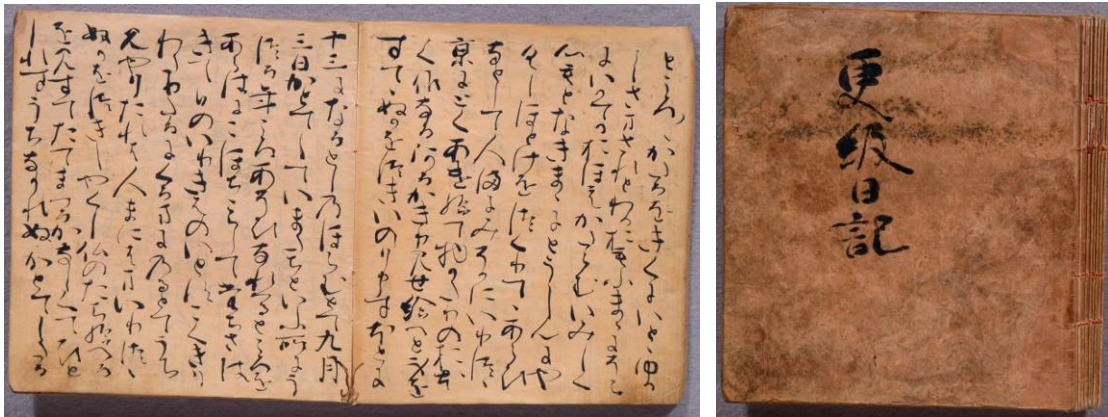 ところ〳〵かたるをきくにいとゝゆか
しさまされとわかおもふまゝにそら
にいかてかおほえかたらむいみしく
心もとなきまゝにとうしんにや
くしほとけをつくりてゝあらひ
なとして人まにみそかにいりつゝ
京にとくあけ給て物かたりのおほ
く候なるあるかきり見せ給へと身を
すてゝぬかをつきいのり申すほとに
十三になるとしのほらむとて九月
三日かとてしていまたちといふ所にう
つる年ころあそひなれつるところを
あらはにこほちちらしてたちさは
きて日のいりきはのいとすこくきり
わたりたるにくるまにのるとてうち
見やりたれは人まにはまいりつゝ
ぬかをつきしやくし仏のたち給へる
を見すてたてまつるかなしくて人
しれすうちなかれぬかとてしたる
更級日記